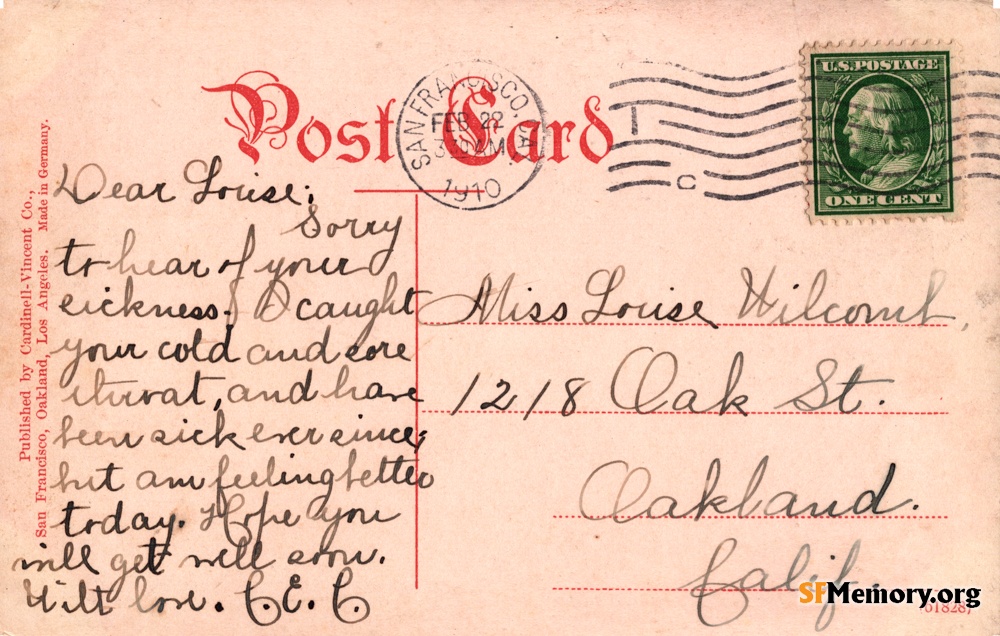 Post Card
SAN FRANCISCO, CAL.
FEB 22
3 30 AM
1910
C
U.S. POSTAGE
ONE CENT
Published by Cardinell-Vincent Co.,
San Francisco, Oakland, Los Angeles. Made in Germany.
Dear Louise:
Sorry
to hear of your
sickness. I caught
your cold and sore
throat, and have
been sick ever since;
but am feeling better
today. Hope you
will get well soon.
With love. C. E. C.
Miss Louise Wilcomb,
1218 Oak St.
Oakland.
Calif.
SFMemory.org